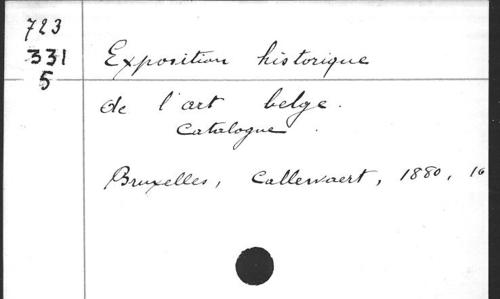 723
331
5
Exposition historique
de l'art belge.
Catalogue.
Bruxelles, Callewaert, 1880, 16